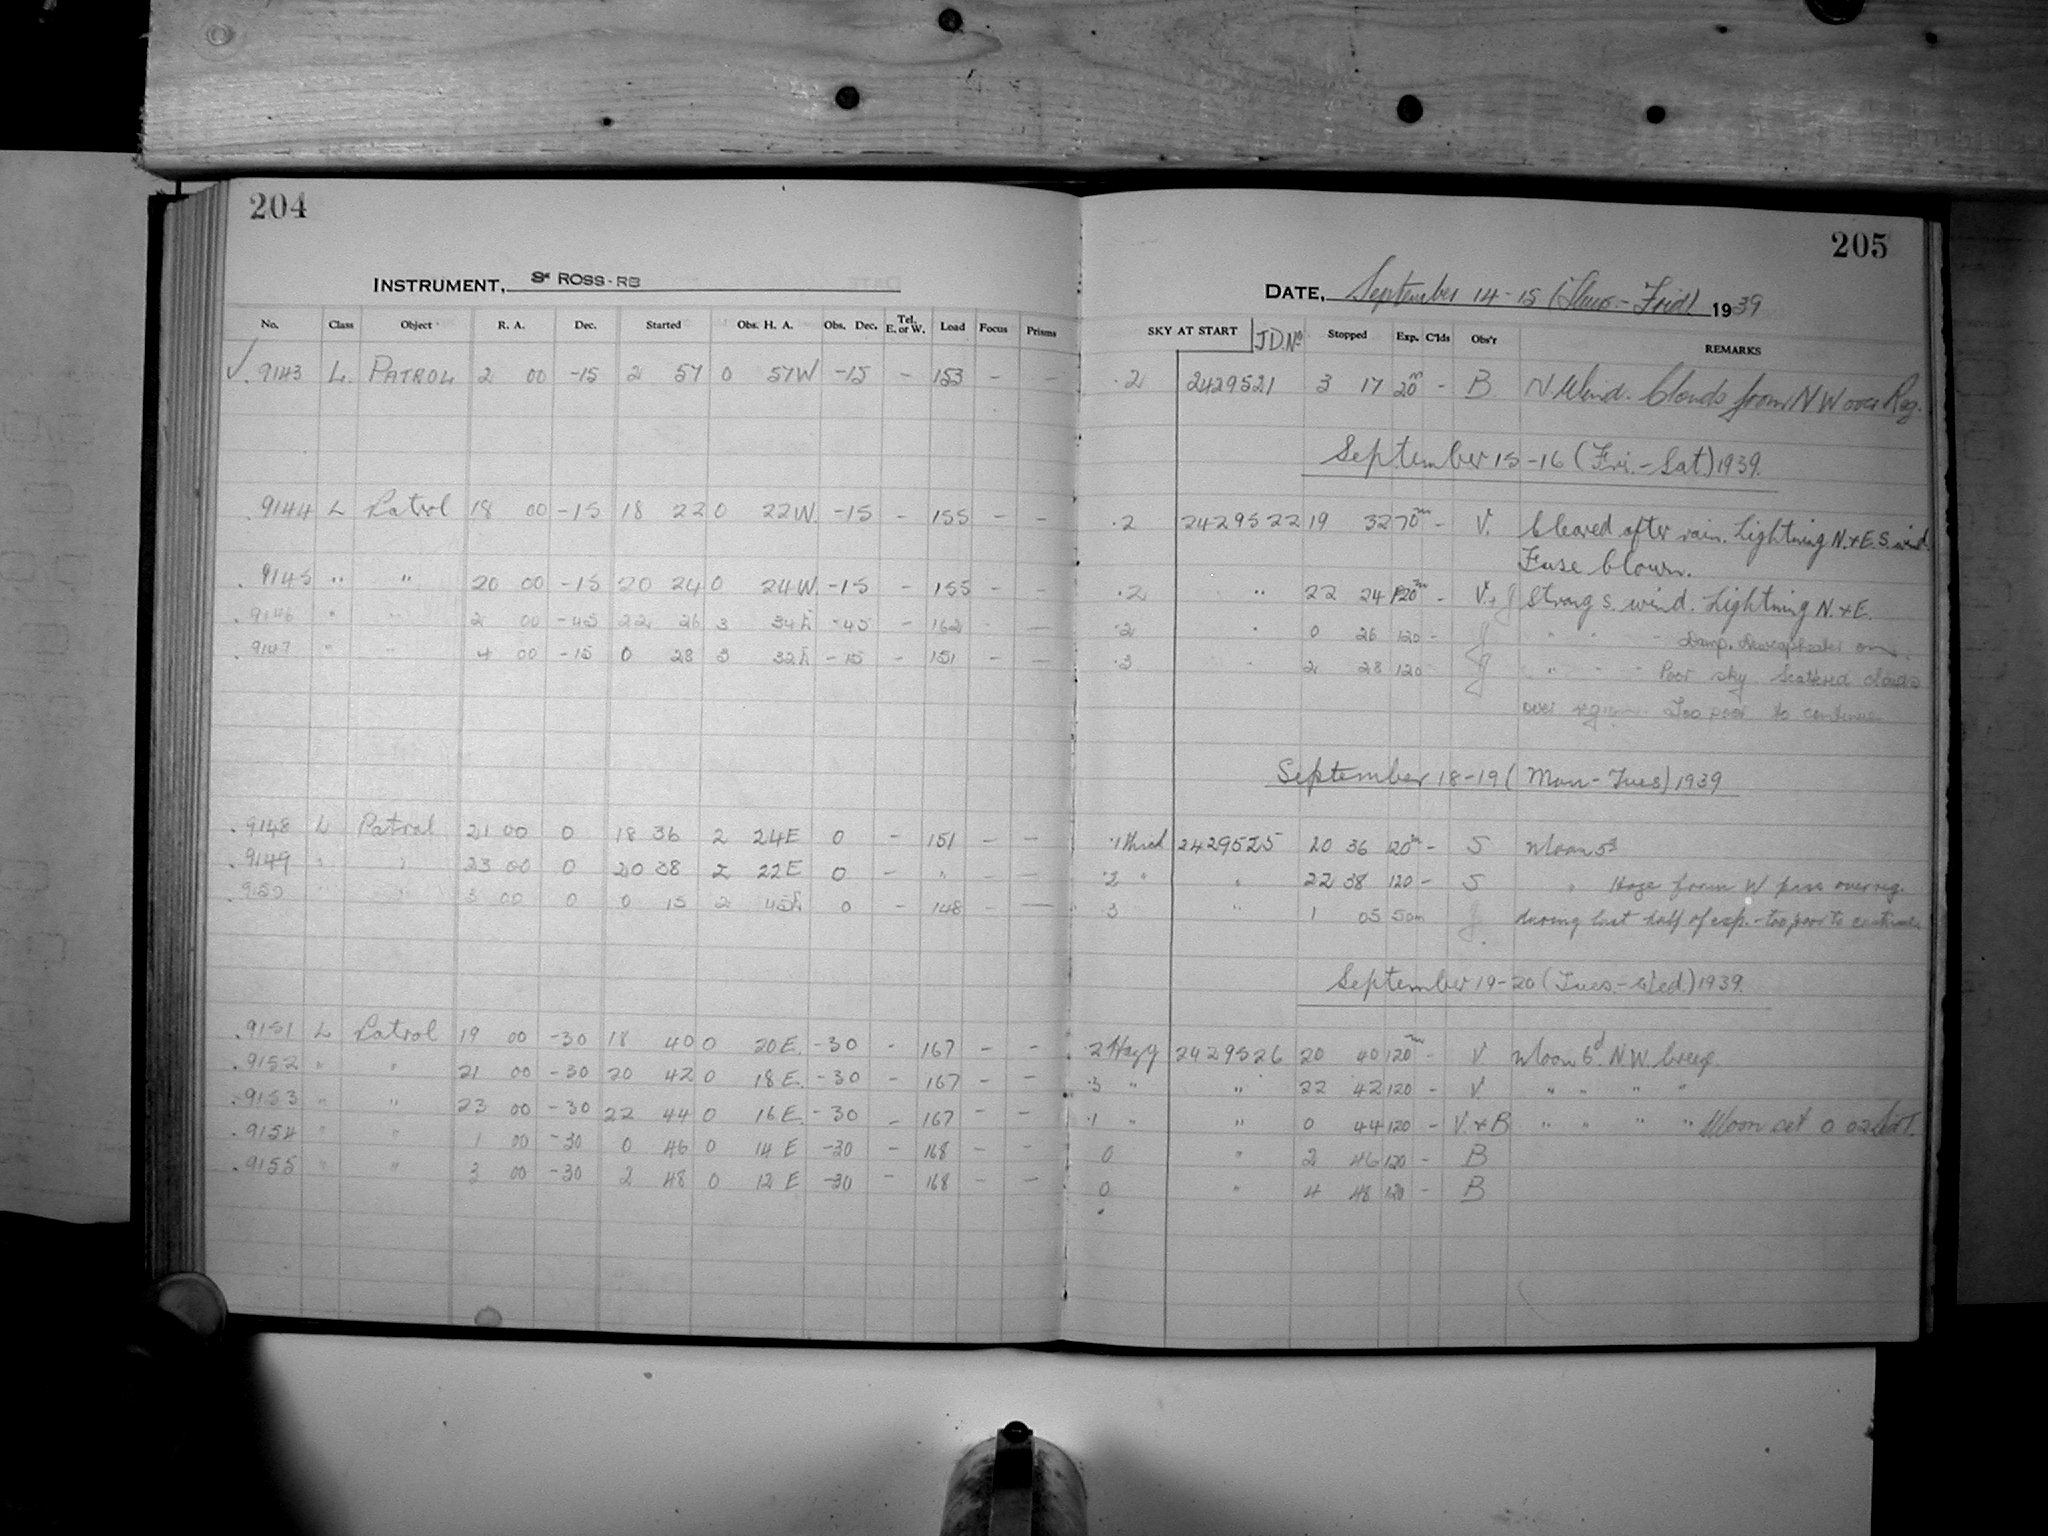 204
INSTRUMENT, 3" ROSS-RB
No. Class Object R. A. Dec. Started Obs. H. A. Obs. Dec. Tel. E. or W. Load Focus Prisms
√. 9143 L. PATROL 2 00 -15 2 57 0 57W -15 - 153 - -
. 9144 L Patrol 18 00 -15 18 22 0 22W. -15 - 155 - -
. 9145 " " 20 00 -15 20 24 0 24W. -15 - 155 - -
. 9146 " " 2 00 -45 22 26 3 34E -45 - 162 - -
. 9147 " " 4 00 -15 0 28 3 32E -15 - 151 - -
. 9148 L Patrol 21 00 0 18 36 2 24E 0 - 151 - -
. 9149 " " 23 00 0 20 38 2 22E 0 - " - -
. 9150 " " 3 00 0 0 15 2 45E 0 - 148 - -
. 9151 L Patrol 19 00 -30 18 40 0 20E. -30 - 167 - -
. 9152 " " 21 00 -30 20 42 0 18E. -30 - 167 - -
. 9153 " " 23 00 -30 22 44 0 16E. -30 - 167 - -
. 9154 " " 1 00 -30 0 46 0 14 E -30 - 168 - -
. 9155 " " 3 00 -30 2 48 0 12 E -30 - 168 - -
205
DATE, September 14-15 (Thurs.-Frid) 1939
SKY AT START J.D.No Stopped Exp. C'lds Obs'r REMARKS
.2 2429521 3 17 20m - B N Wind. Clouds from NW over Reg.
September 15-16 (Fri.-Sat) 1939.
.2 2429522 19 32 70m - V. Cleared after rain. Lightning N.+E. S. wind
Fuse blown.
.2 " 22 24 120m - V.+J Strong S. wind. Lightning N.+E.
.2 " 0 26 120 - J " " " Damp. Dewcap heater on.
.3 " 2 28 120 J " " " Poor sky. Scattered clouds
over region. Too poor to continue
September 18-19 (Mon-Tues) 1939
.1 thick 2429525 20 36 120m - S Moon 5d
.2 " " 22 38 120 - S " Haze from W pass over reg.
.3 " 1 05 50m J during last half of exp. - too poor to continue
September 19-20 (Tues.-Wed.) 1939.
.2 Hazy 2429526 20 40 120m - V Moon 6d. N.W. breeze.
.3 " " 22 42 120 - V. " " " "
.1 " " 0 44 120 - V.+B " " " " Moon set 0 02
0 " 2 46 120 - B
0 " 4 48 120 - B